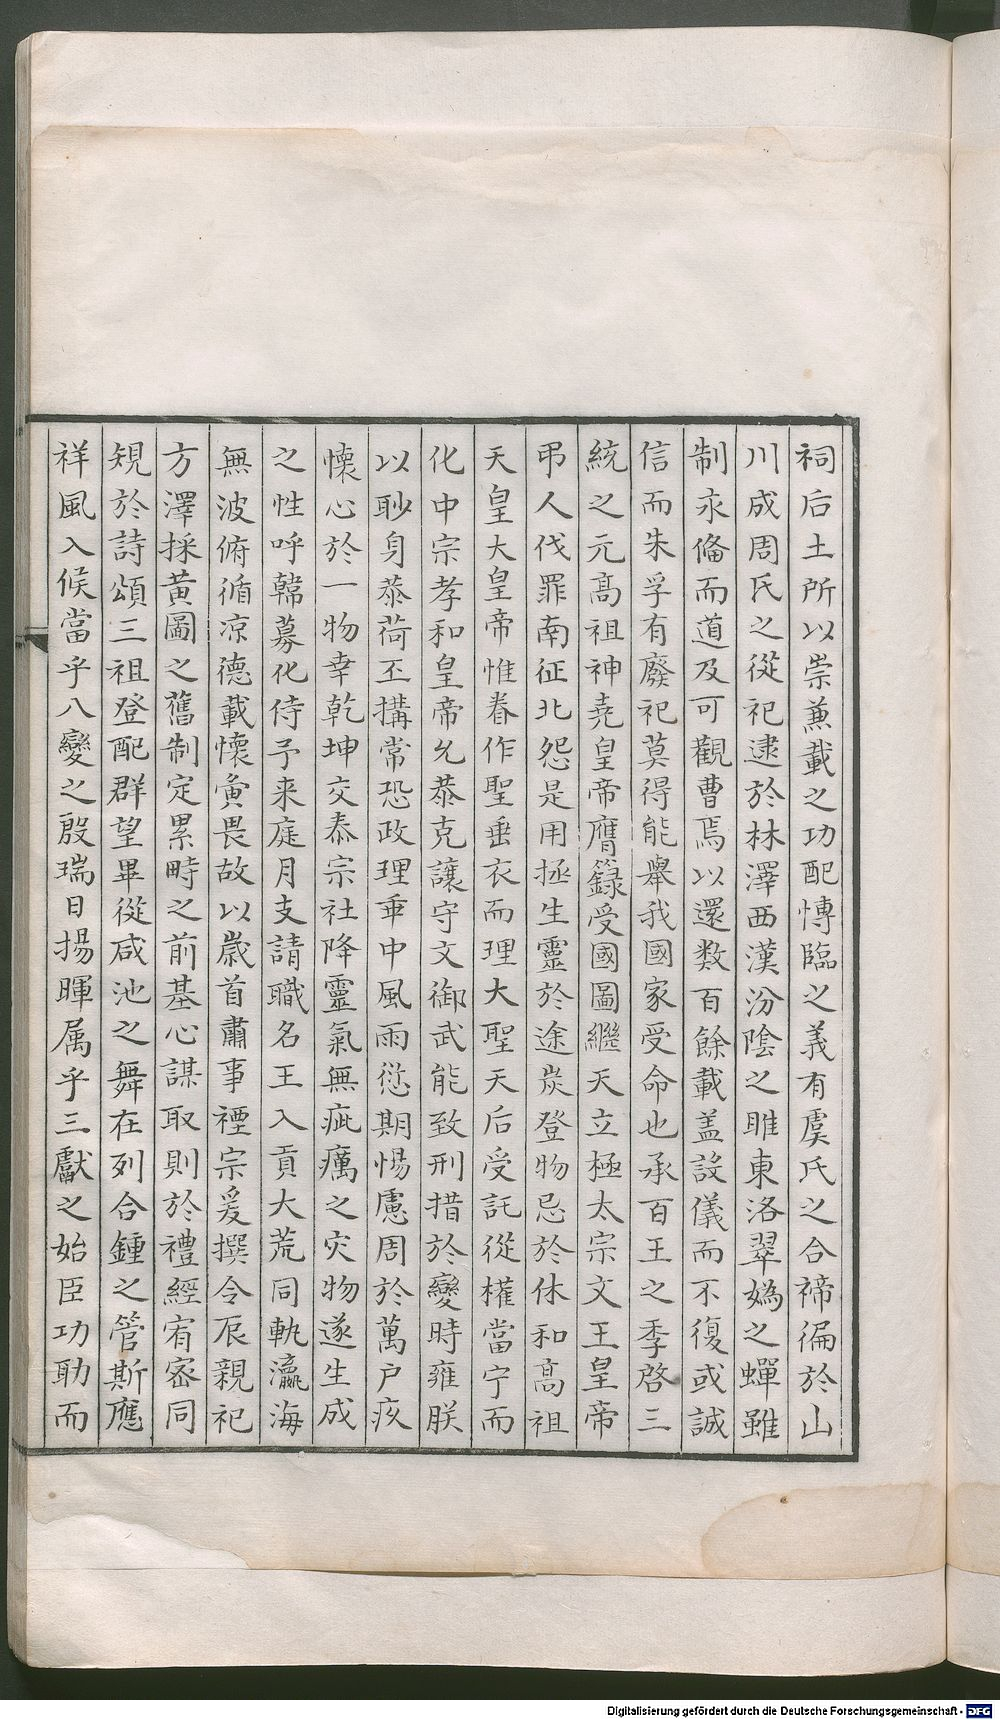 祠后土所以崇兼載之功配慱臨之義有虞氏之合禘徧於山
川成周氏之從祀逮於林澤西漢汾陰之睢東洛翠嬀之蟬雖
制永備而道及可觀曹焉以還数百餘載盖設儀而不復或誠
信而朱孚有廢祀莫得能舉我國家受命也承百王之季啓三
統之元高祖神堯皇帝膺籙受國圖繼天立極太宗文王皇帝
弔人伐罪南征北怨是用拯生靈於途炭登物忌於休和高祖
天皇大皇帝惟眷作聖垂衣而理大聖天后受託從權當宁而
化中宗孝和皇帝允恭克讓守文御武能致刑措於變時雍朕
以眇身恭荷丕搆常恐政理乖中風雨愆期惕慮周於萬户疚
懷心於一物幸乾坤交泰宗社降靈氣無疵癘之灾物遂生成
之性呼韓募化侍予来庭月支請職名王入貢大荒同軌瀛海
無波俯循凉德載懷夤畏故以歲首肅事禋宗爰撰令辰親祀
方澤採黄圖之舊制定累畤之前基心謀取則於禮經宥密同
規於詩頌三祖登配群望畢從咸池之舞在列合鍾之管斯應
祥風入候當乎八變之殷瑞日揚暉属乎三獻之始臣功助而
Digitalisierung gefördert durch die Deutsche Forschungsgemeinschaft - DFG